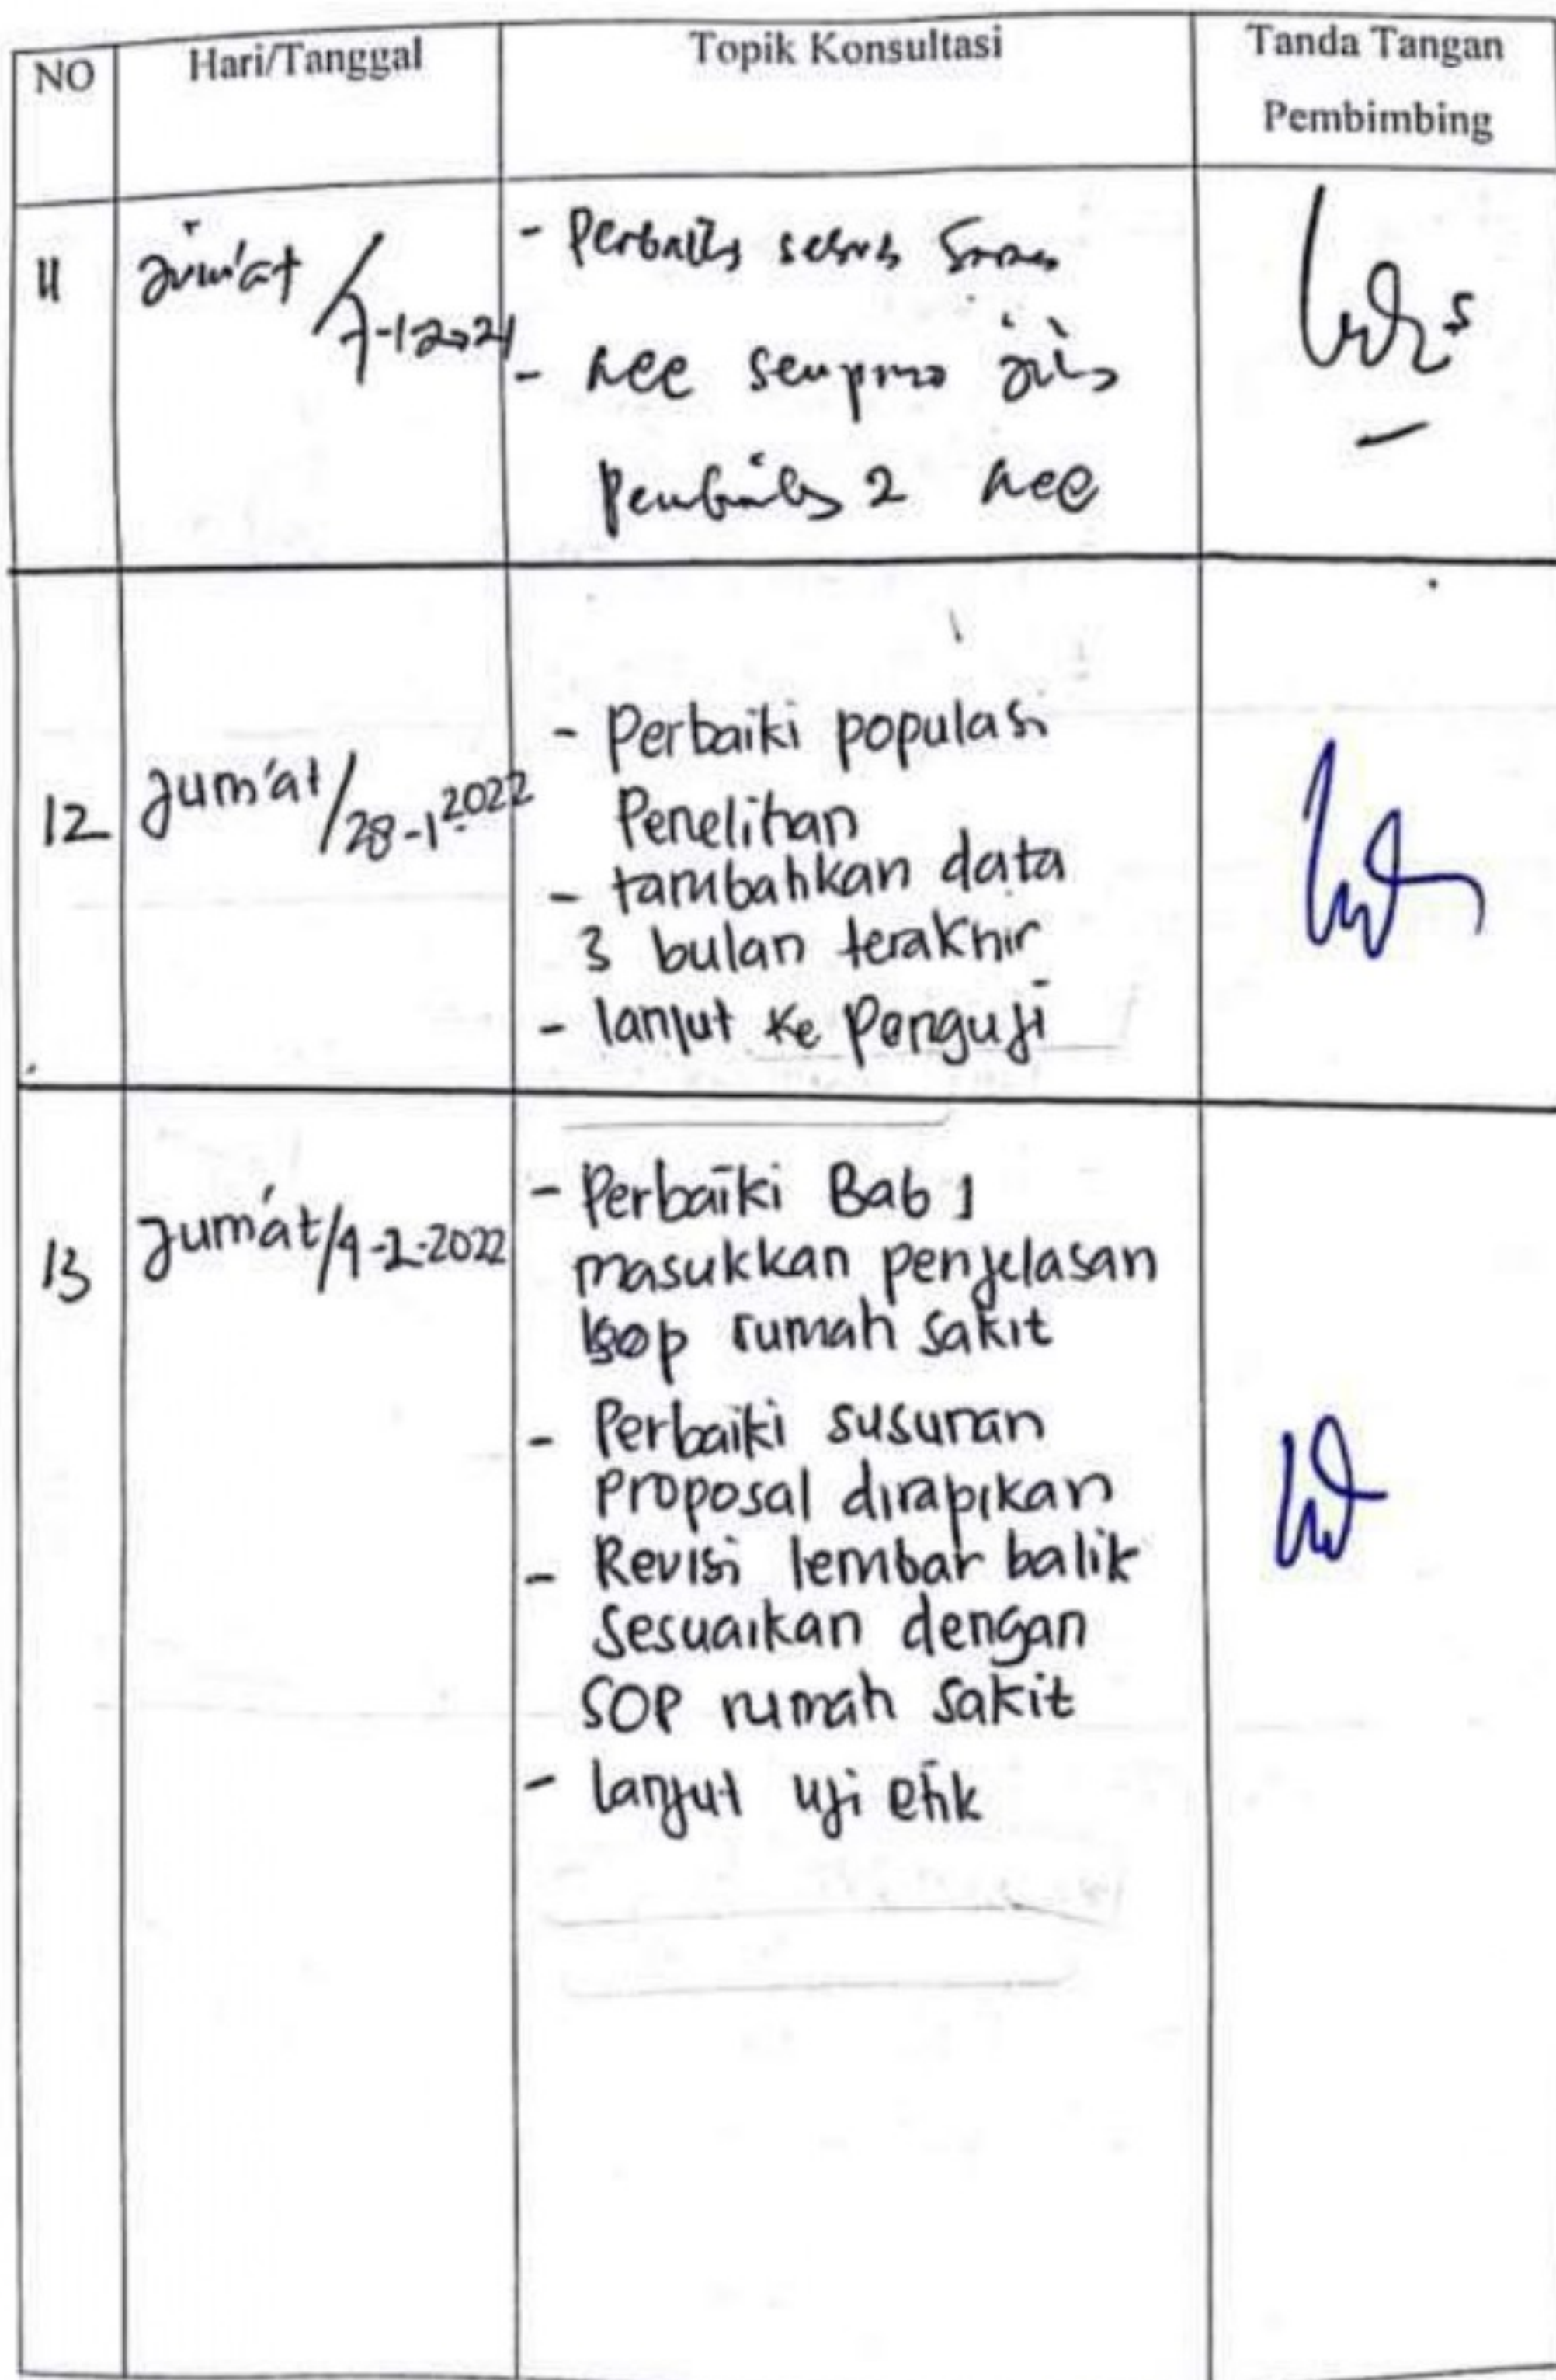 NO Hari/Tanggal Topik Konsultasi Tanda Tangan
Pembimbing
11 Jum'at / 7-1-2021
- Perbaiki sesuai saran
- Acc sempro jika
pembimbing 2 Acc
12 Jum'at / 28-1-2022
- Perbaiki populasi
Penelitian
- tambahkan data
3 bulan terakhir
- lanjut ke Penguji
13 Jum'at / 4-2-2022
- Perbaiki Bab 1
masukkan penjelasan
sop rumah sakit
- Perbaiki susunan
Proposal dirapikan
- Revisi lembar balik
Sesuaikan dengan
SOP rumah sakit
- lanjut uji etik